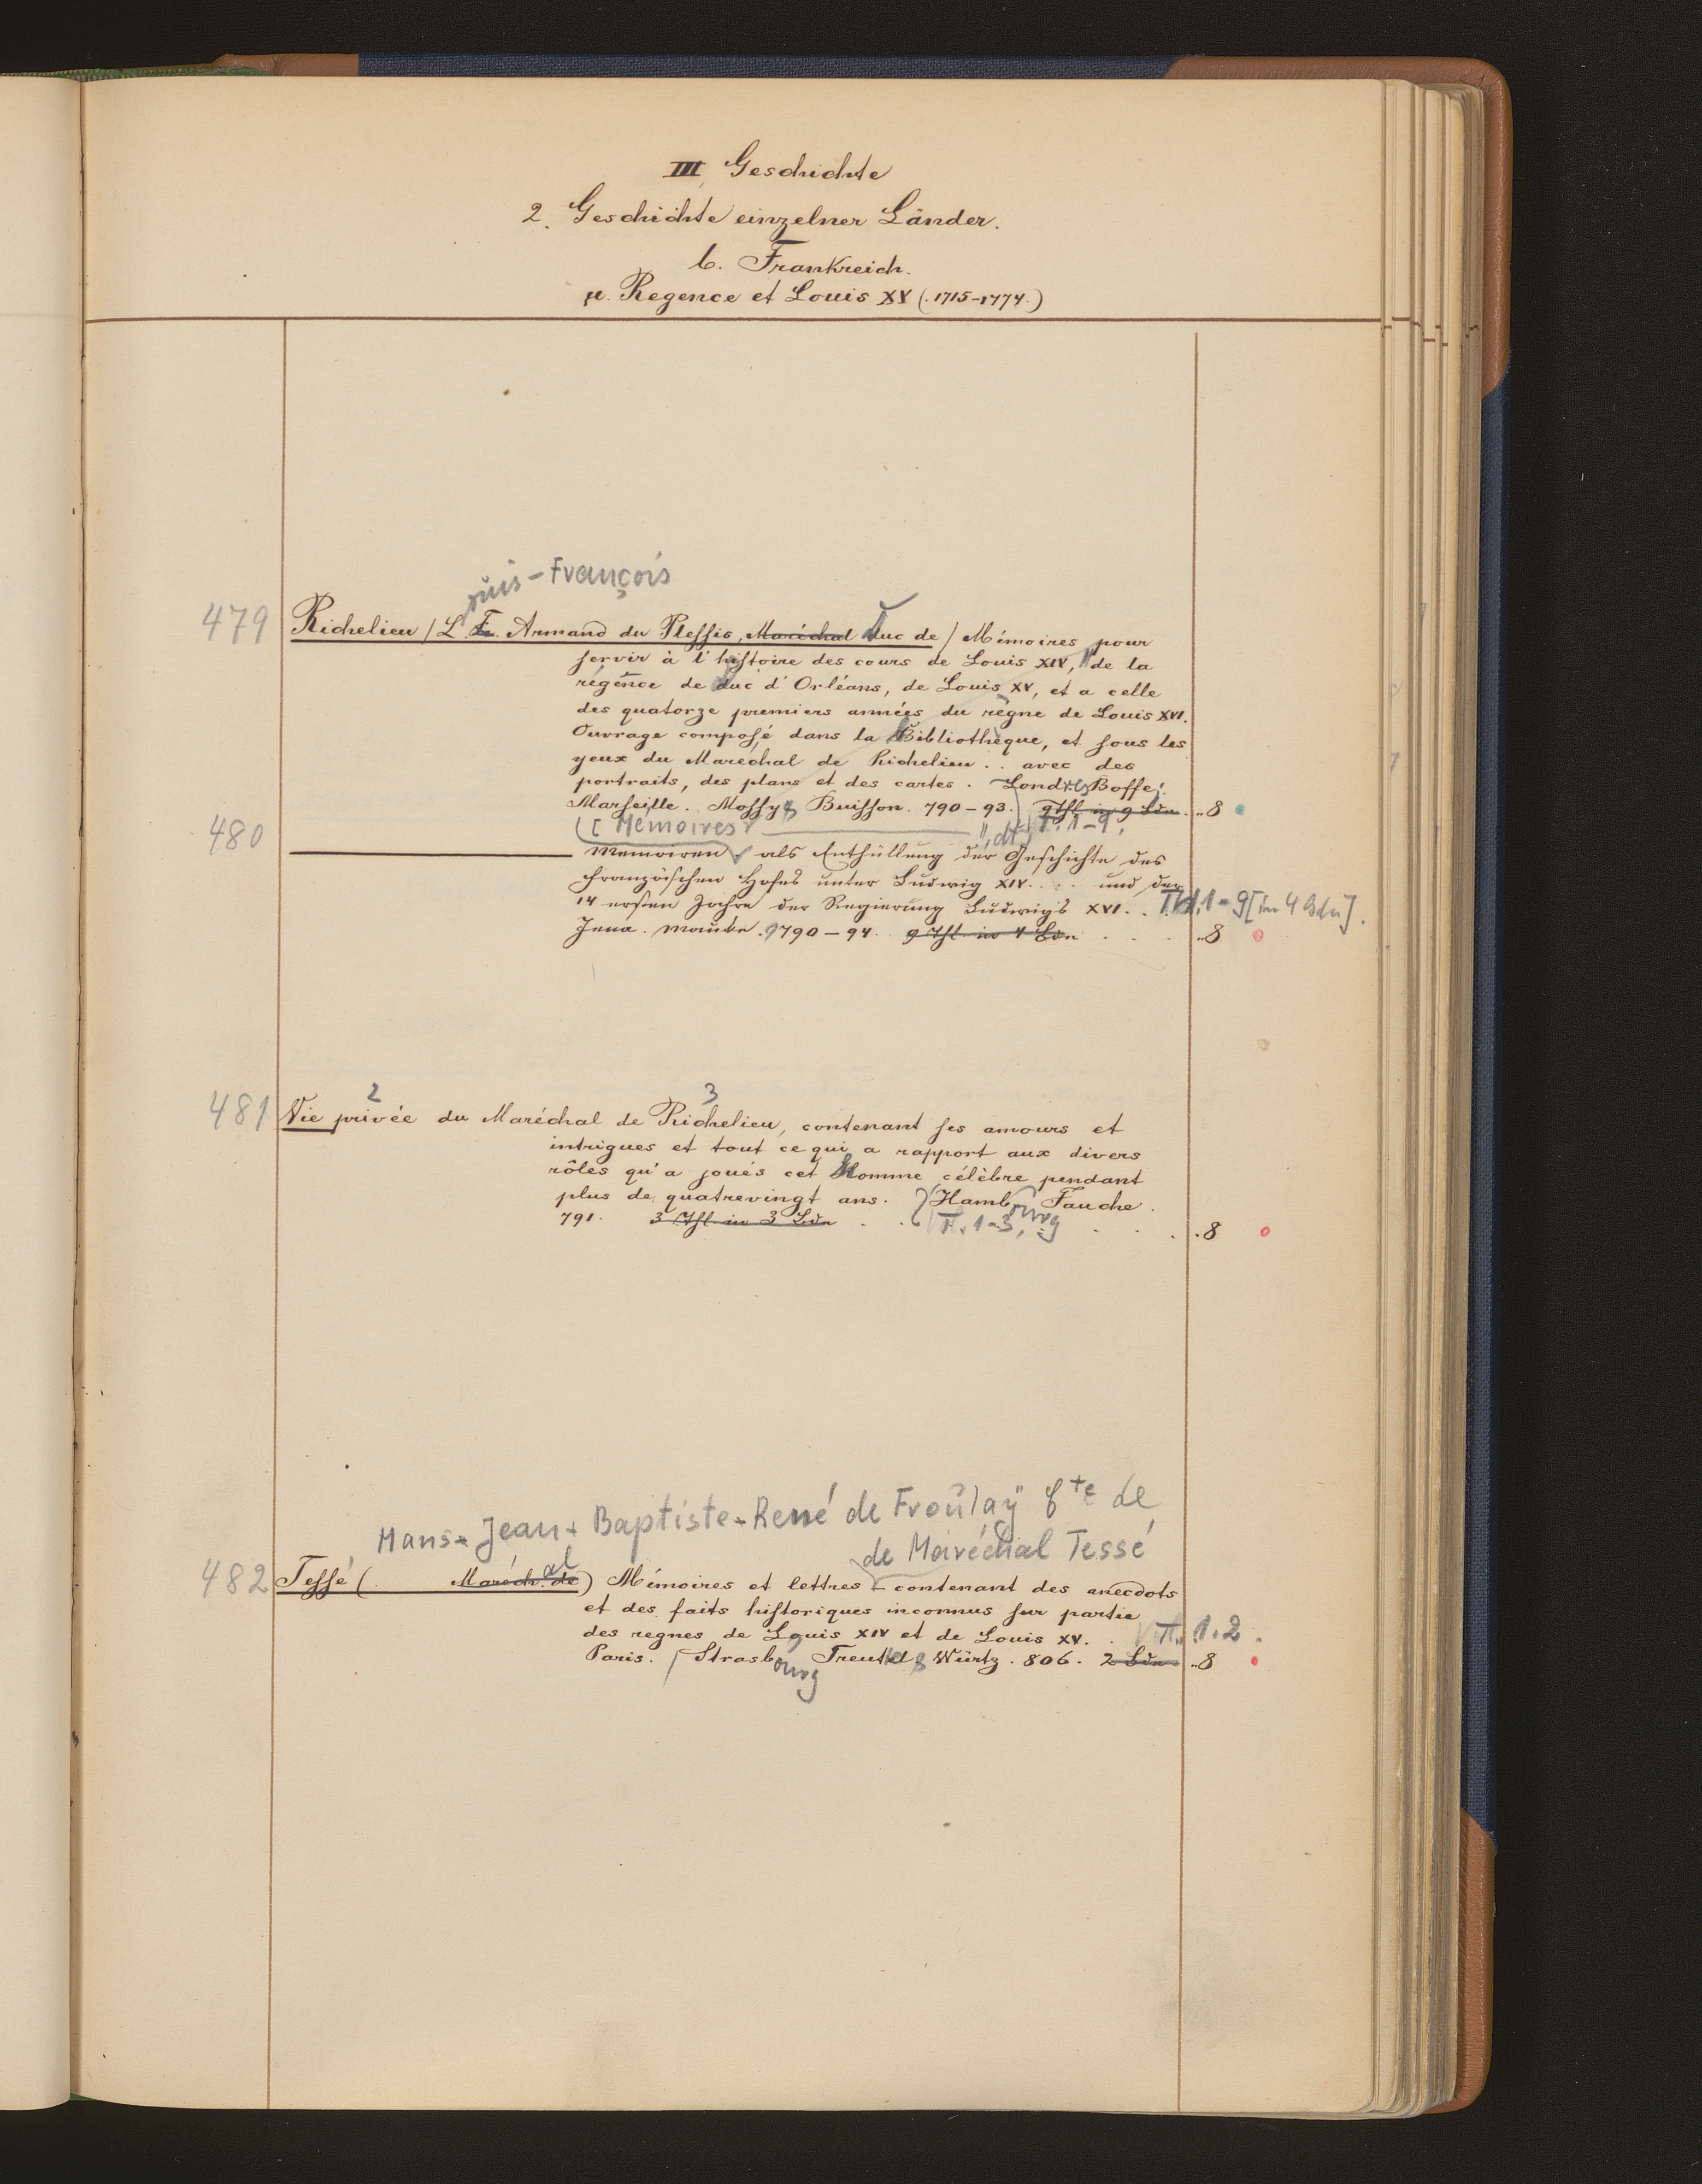 III Geschichte
2. Geschichte einzelner Länder.
b. Frankreich.
μ. Regence et Louis XV (.1715-1774.)
ouis-François
479 Richelieu / L. F. Armand du Plessis, Maréchal Duc de / Mémoires pour
servir à l'histoire des cours de Louis XIV, de la
régence de duc d'Orléans, de Louis XV, et a celle
des quatorze premiers années du règne de Louis XVI.
Ouvrage composé dans la Bibliothèque, et sous les
yeux du Maréchal de Richelieu .. avec des
portraits, des plans et des cartes. Londres, Boffe;
Marseille. Mossy & Buisson. 790-93. 9 Thl in 9 Bdn. .. 8
480 [Mémoires, dt.] T. 1-9.
Memoiren als Enthüllung der Geschichte des
französischen Hofes unter Ludwig XIV. . . . und der
14 ersten Jahre der Regierung Ludwigs XVI. . . Thl. 1-9 [in 4 Bdn].
Jena. Mauke. 1790-94. 9 Thl in 4 Bdn . . . .. 8
2 3
481 Vie privée du Maréchal de Richelieu, contenant ses amours et
intrigues et tout ce qui a rapport aux divers
rôles qu'a joués cet Homme célèbre pendant
plus de quatrevingt ans. Hambourg Fauche.
791. 3 Thl in 3 Bdn . . T. 1-3, . . . . 8
Mans-Jean-Baptiste-René de Froûlaÿ Cte de
de Maréchal Tessé
482 Tessé (. Maréch.al de) Mémoires et lettres - contenant des anecdots
et des faits historiques inconnus sur partie
des regnes de Louis XIV et de Louis XV. . T. 1.2.
Paris. / Strasbourg Treuttel & Würtz. 806. 2 Bdn .. 8